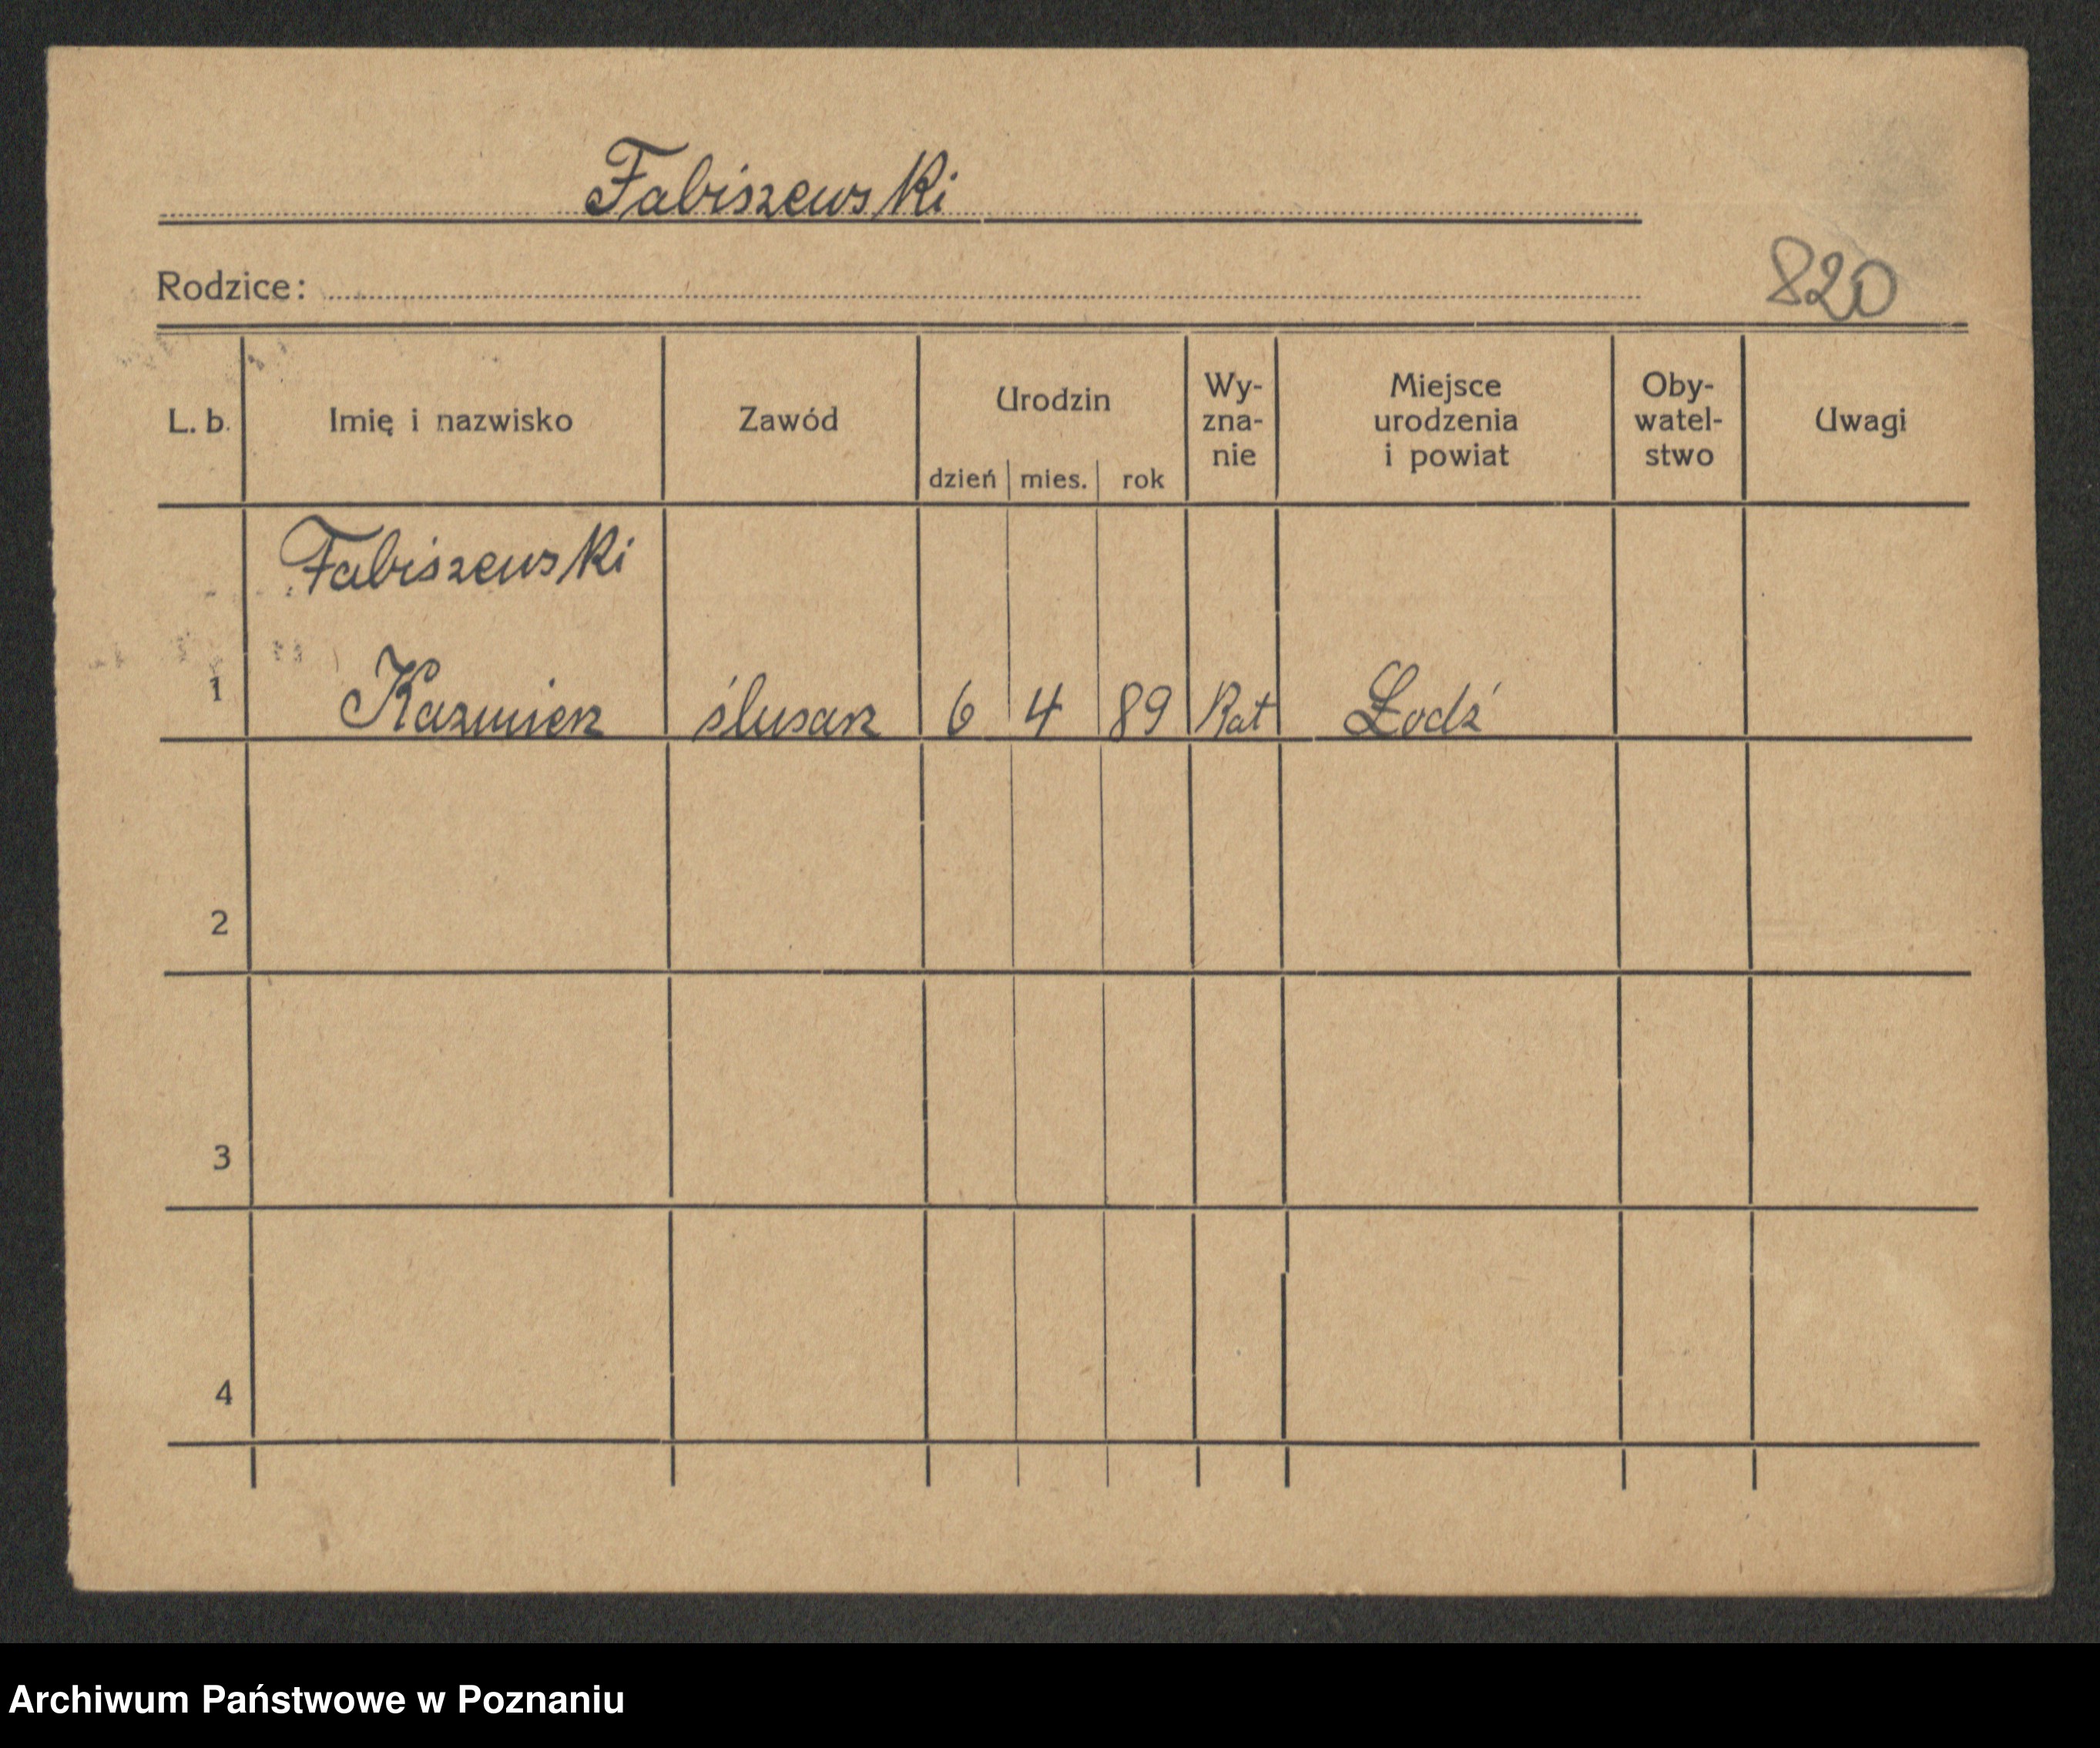 Fabiszewski
Rodzice:
820
L. b. Imię i nazwisko Zawód Urodzin dzień mies. rok Wy- zna- nie Miejsce urodzenia i powiat Oby- watel- stwo Uwagi
Fabiszewski
1 Kazmierz ślusarz 6 4 89 Kat Łodź
2
3
4
Archiwum Państwowe w Poznaniu